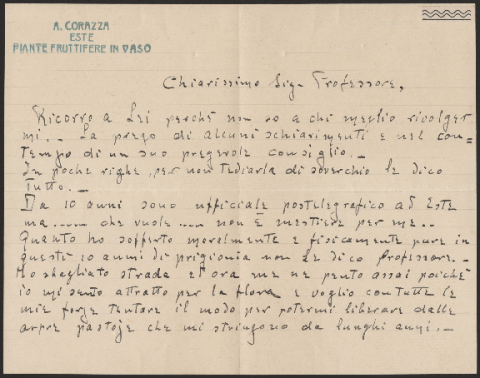 A. CORAZZA
ESTE
PIANTE FRUTTIFERE IN VASO
Chiarissimo Sig. Professore,
Ricorro a Lei perché non so a chi meglio rivolger
mi.- La prego di alcuni schiarimenti e nel con=
tempo di un suo pregevole consiglio.-
In poche righe, per non tediarla di soverchio le dico
tutto.-
Da 10 anni sono ufficiale postelegrafico ad Este
ma..... che vuole.... non è mestiere per me..
Quanto ho sofferto moralmente e fisicamente pure in
questi 10 anni di prigionia non Le dico Professore.-
Ho sbagliato strada e ora me ne pento assai poiché
io mi sento attratto per la flora e voglio con tutte le
mie forze tentare il modo per potermi liberare dalle
aspre pastoje che mi stringono da lunghi anni.-